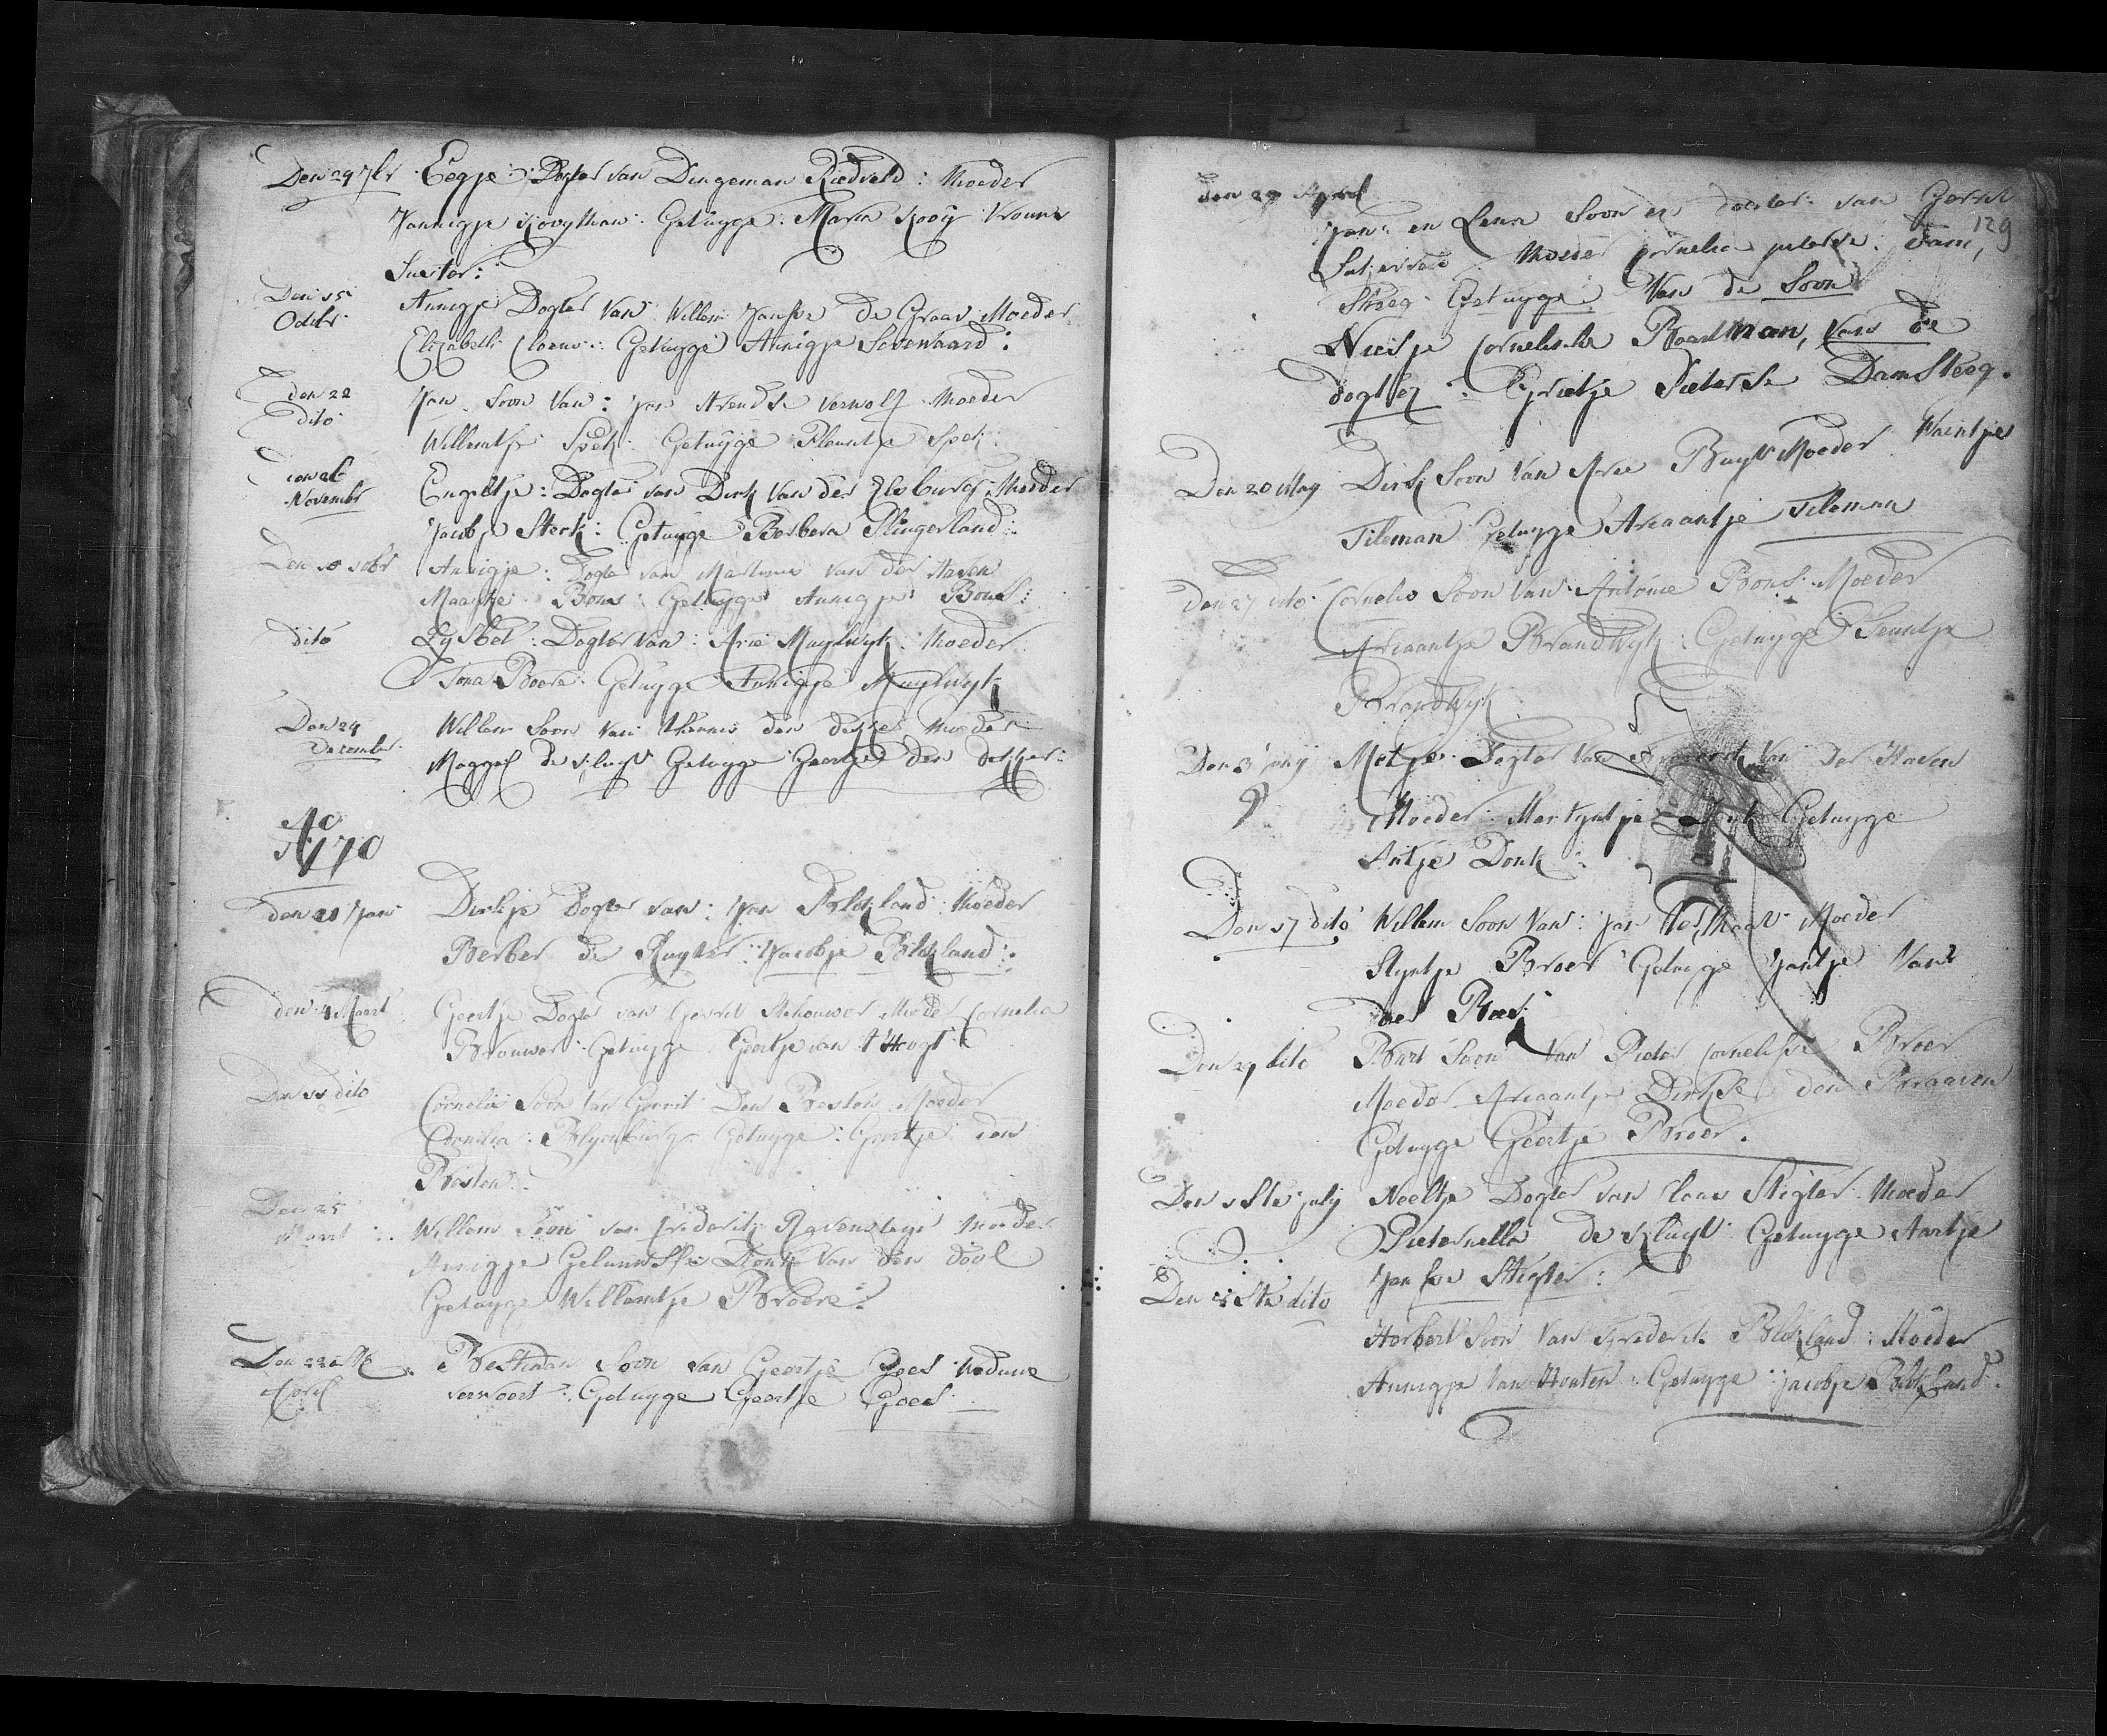 Den 24 7br Eegje : Dogter van Dingeman Rietveld : Moeder
Jannigje Kooyman : Getuyge : Maria Kooy Vrouw
Den 15 Octobr. Annigje Dogter Van Willem Janse De Graav Moeder
Elizabeth Claeuw : Getuyge Annigje
den 22 dito Jan Soon Van : Jan Arendse verwolf Moeder
Willemtje Spek : Getuyge Pleuntje Spek :
Novembr Engeltje : Dogter van Dirk Van der Elsburg : Moeder
Jacobje Sterk : Getuyge Berbera Slingerland :
Den 10 10br Annigje : Dogter van Martinus van der Haven
Maayke Bons : Getuyge Annigje Bons :
dito Lysbet : Dogter Van : Arie Muylwyk : Moeder
Boere : Getuyge Annigje Muylwyk
Den 24 December Willem Soon Van den dekker Moeder
Maggel de Sluys Getuyge Geertje den dekker :
Ao 1770
den 21 Jan Dirkje Dogter van : Jan Blokland : Moeder
Berber de Ruyter : Jacobje Blokland :
den 4 Maart Geertje Dogter van Gerrit Stehouwer Moeder Cornelia
Brouwer : Getuyge Geertje van t Hoogt
Den 11 dito Cornelis Soon Van Gerrit Den Besten Moeder
Cornelia : Blyenburg Getuyge : Geertje den
Besten :
Den 25 Maart Willem Soon van Frederik Ravenslage moeder
Annigje Donk Van den dool
Getuyge Willemtje Broere :
Den 22ste April Bastiaan Soon van Geertje Goes weduwe
vervoort : Getuyge Geertje Goes
129
den 29 April Jan en Lena Soon en docter van Gerrit
Moeder Cornelia peterse : Dam,
Steeg Getuyge Van de Soon
Neesje Cornelisse Baardman, van de
dogter : Grietje Pieterse DamSteeg.
Den 20 May Dirk Soon Van Arie Buys Moeder Weintje
Tileman Getuyge Ariaantje Tileman
Den 27 dito Cornelis Soon Van Antonie Bons Moeder
Ariaantje BrandWyk : Getuyge Teuntje
BrandWyk
Den 3 Juny Metje Dogter Van Van Der Haven
Moeder : Martyntje Getuyge
Antje Donk :
Den 17 dito Willem Soon Van : Jan Moeder
Styntje Broer Getuyge Jantje Van
der
Den 24 dito Bart Soon Van Pieter Cornelisse Broer
Moeder Ariaantje Dirkse den Braaven
Getuyge Geertje Broer.
Den 1ste july Neeltje Dogter van Claas Stigter Moeder
Pieternella de Sluys Getuyge Aartje
Janse Stigter :
dito Herbert Soon Van Frederik Blokland : Moeder
Annigje Van Houten : Getuyge : Jacobje Blokland.